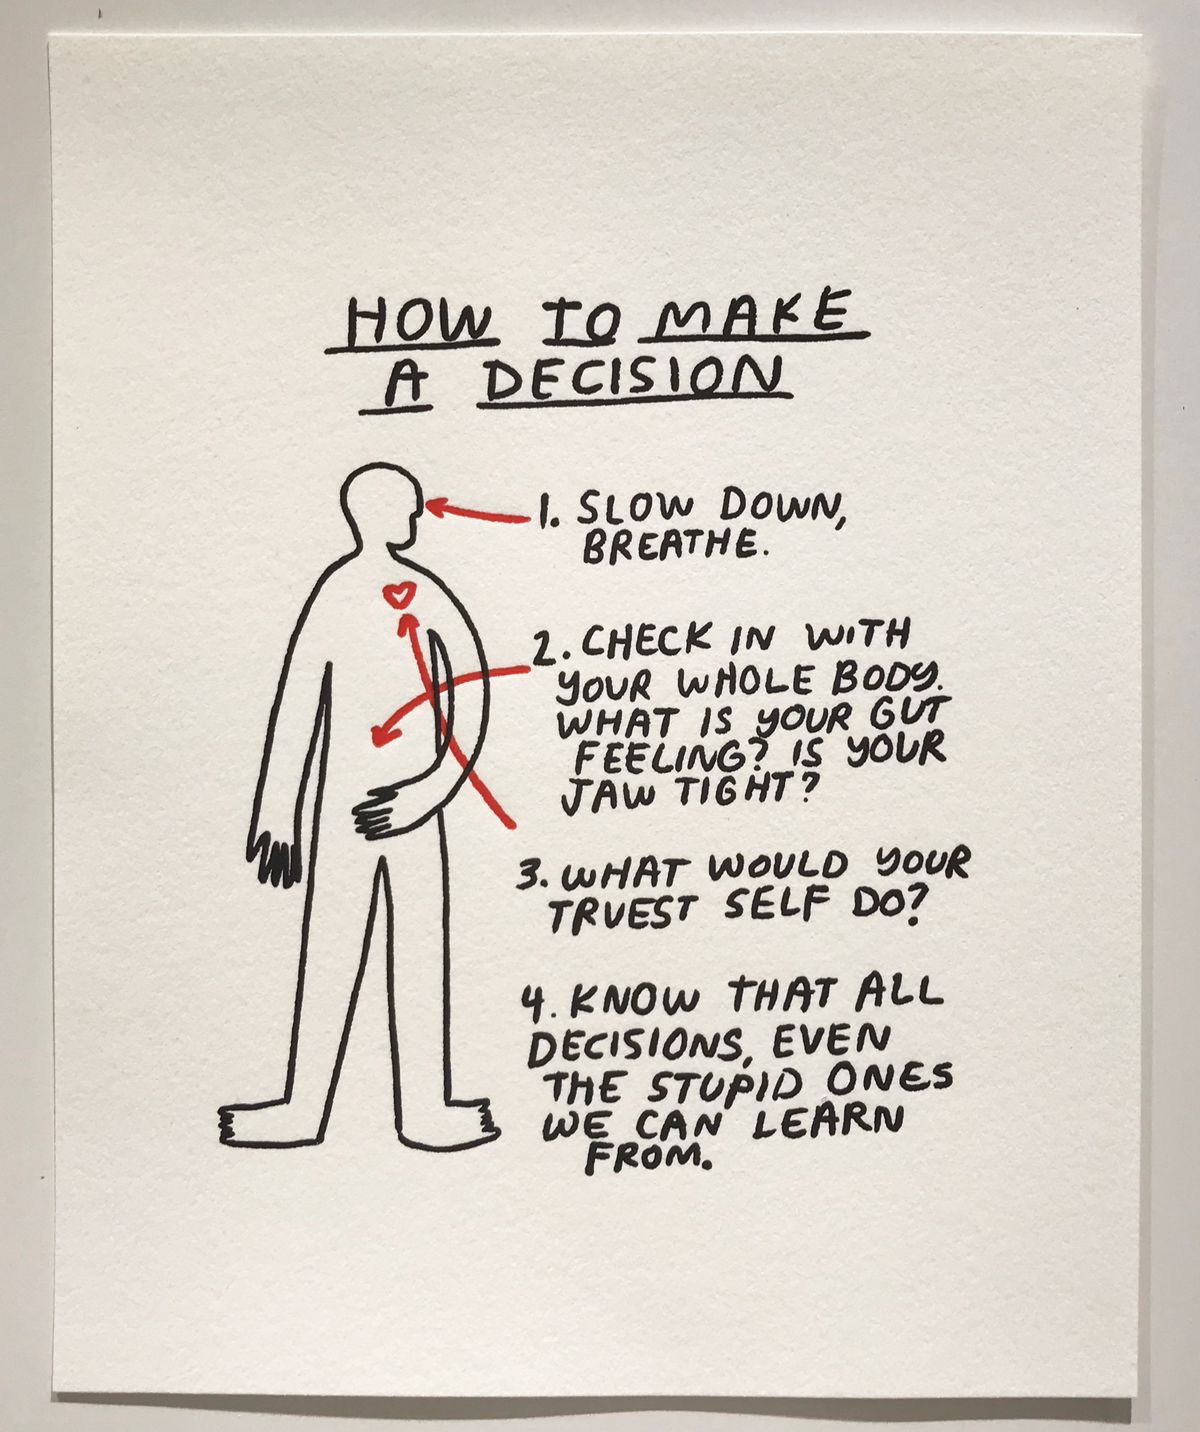 HOW TO MAKE
A DECISION
1. SLOW DOWN,
BREATHE.
2. CHECK IN WITH
YOUR WHOLE BODY.
WHAT IS YOUR GUT
FEELING? IS YOUR
JAW TIGHT?
3. WHAT WOULD YOUR
TRUEST SELF DO?
4. KNOW THAT ALL
DECISIONS, EVEN
THE STUPID ONES
WE CAN LEARN
FROM.